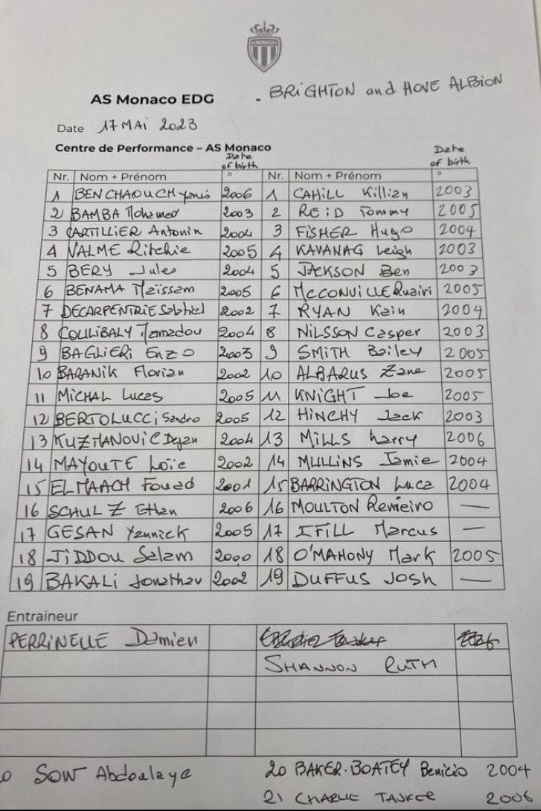 AS Monaco EDG - BRIGHTON and HOVE ALBION
Date 17 MAI 2023
Centre de Performance – AS Monaco
Date of birth Date of birth
Nr. Nom + Prénom ° Nr. Nom + Prénom °
1 BENCHAOUCH Yanis 2006 1 CAHILL Killian 2003
2 BAMBA Mohamed 2003 2 REID Tommy 2005
3 CARTILLIER Antonin 2004 3 FISHER Hugo 2004
4 VALME Ritchie 2005 4 KAVANAG Leigh 2003
5 BERY Jules 2004 5 JACKSON Ben 2003
6 BENAMA Maïssam 2005 6 McCONVILLE Ruairi 2005
7 DECARPENTRIE Gabriel 2002 7 RYAN Kain 2004
8 COULIBALY Mamadou 2004 8 NILSSON Casper 2003
9 BAGLIERI Enzo 2003 9 SMITH Bailey 2005
10 BARANIK Florian 2002 10 ALBARUS Zane 2005
11 MICHAL Lucas 2005 11 KNIGHT Joe 2005
12 BERTOLUCCI Sandro 2005 12 HINCHY Jack 2003
13 KUZMANOVIC Dejan 2004 13 MILLS harry 2006
14 MAYOUTE Loïc 2002 14 MULLINS Jamie 2004
15 EL MAACH Fouad 2001 15 BARRINGTON Luca 2004
16 SCHULZ Ethan 2006 16 MOULTON Remeiro —
17 GESAN Yannick 2005 17 IFILL Marcus —
18 JIDDOU Salem 2000 18 O'MAHONY Mark 2005
19 BAKALI Jonathan 2002 19 DUFFUS Josh —
Entraineur
PERRINELLE Damien
SHANNON RUTH
0 SOW Abdoulaye 20 BAKER-BOATEY Benicio 2004
21 CHARLIE TASKER 2006